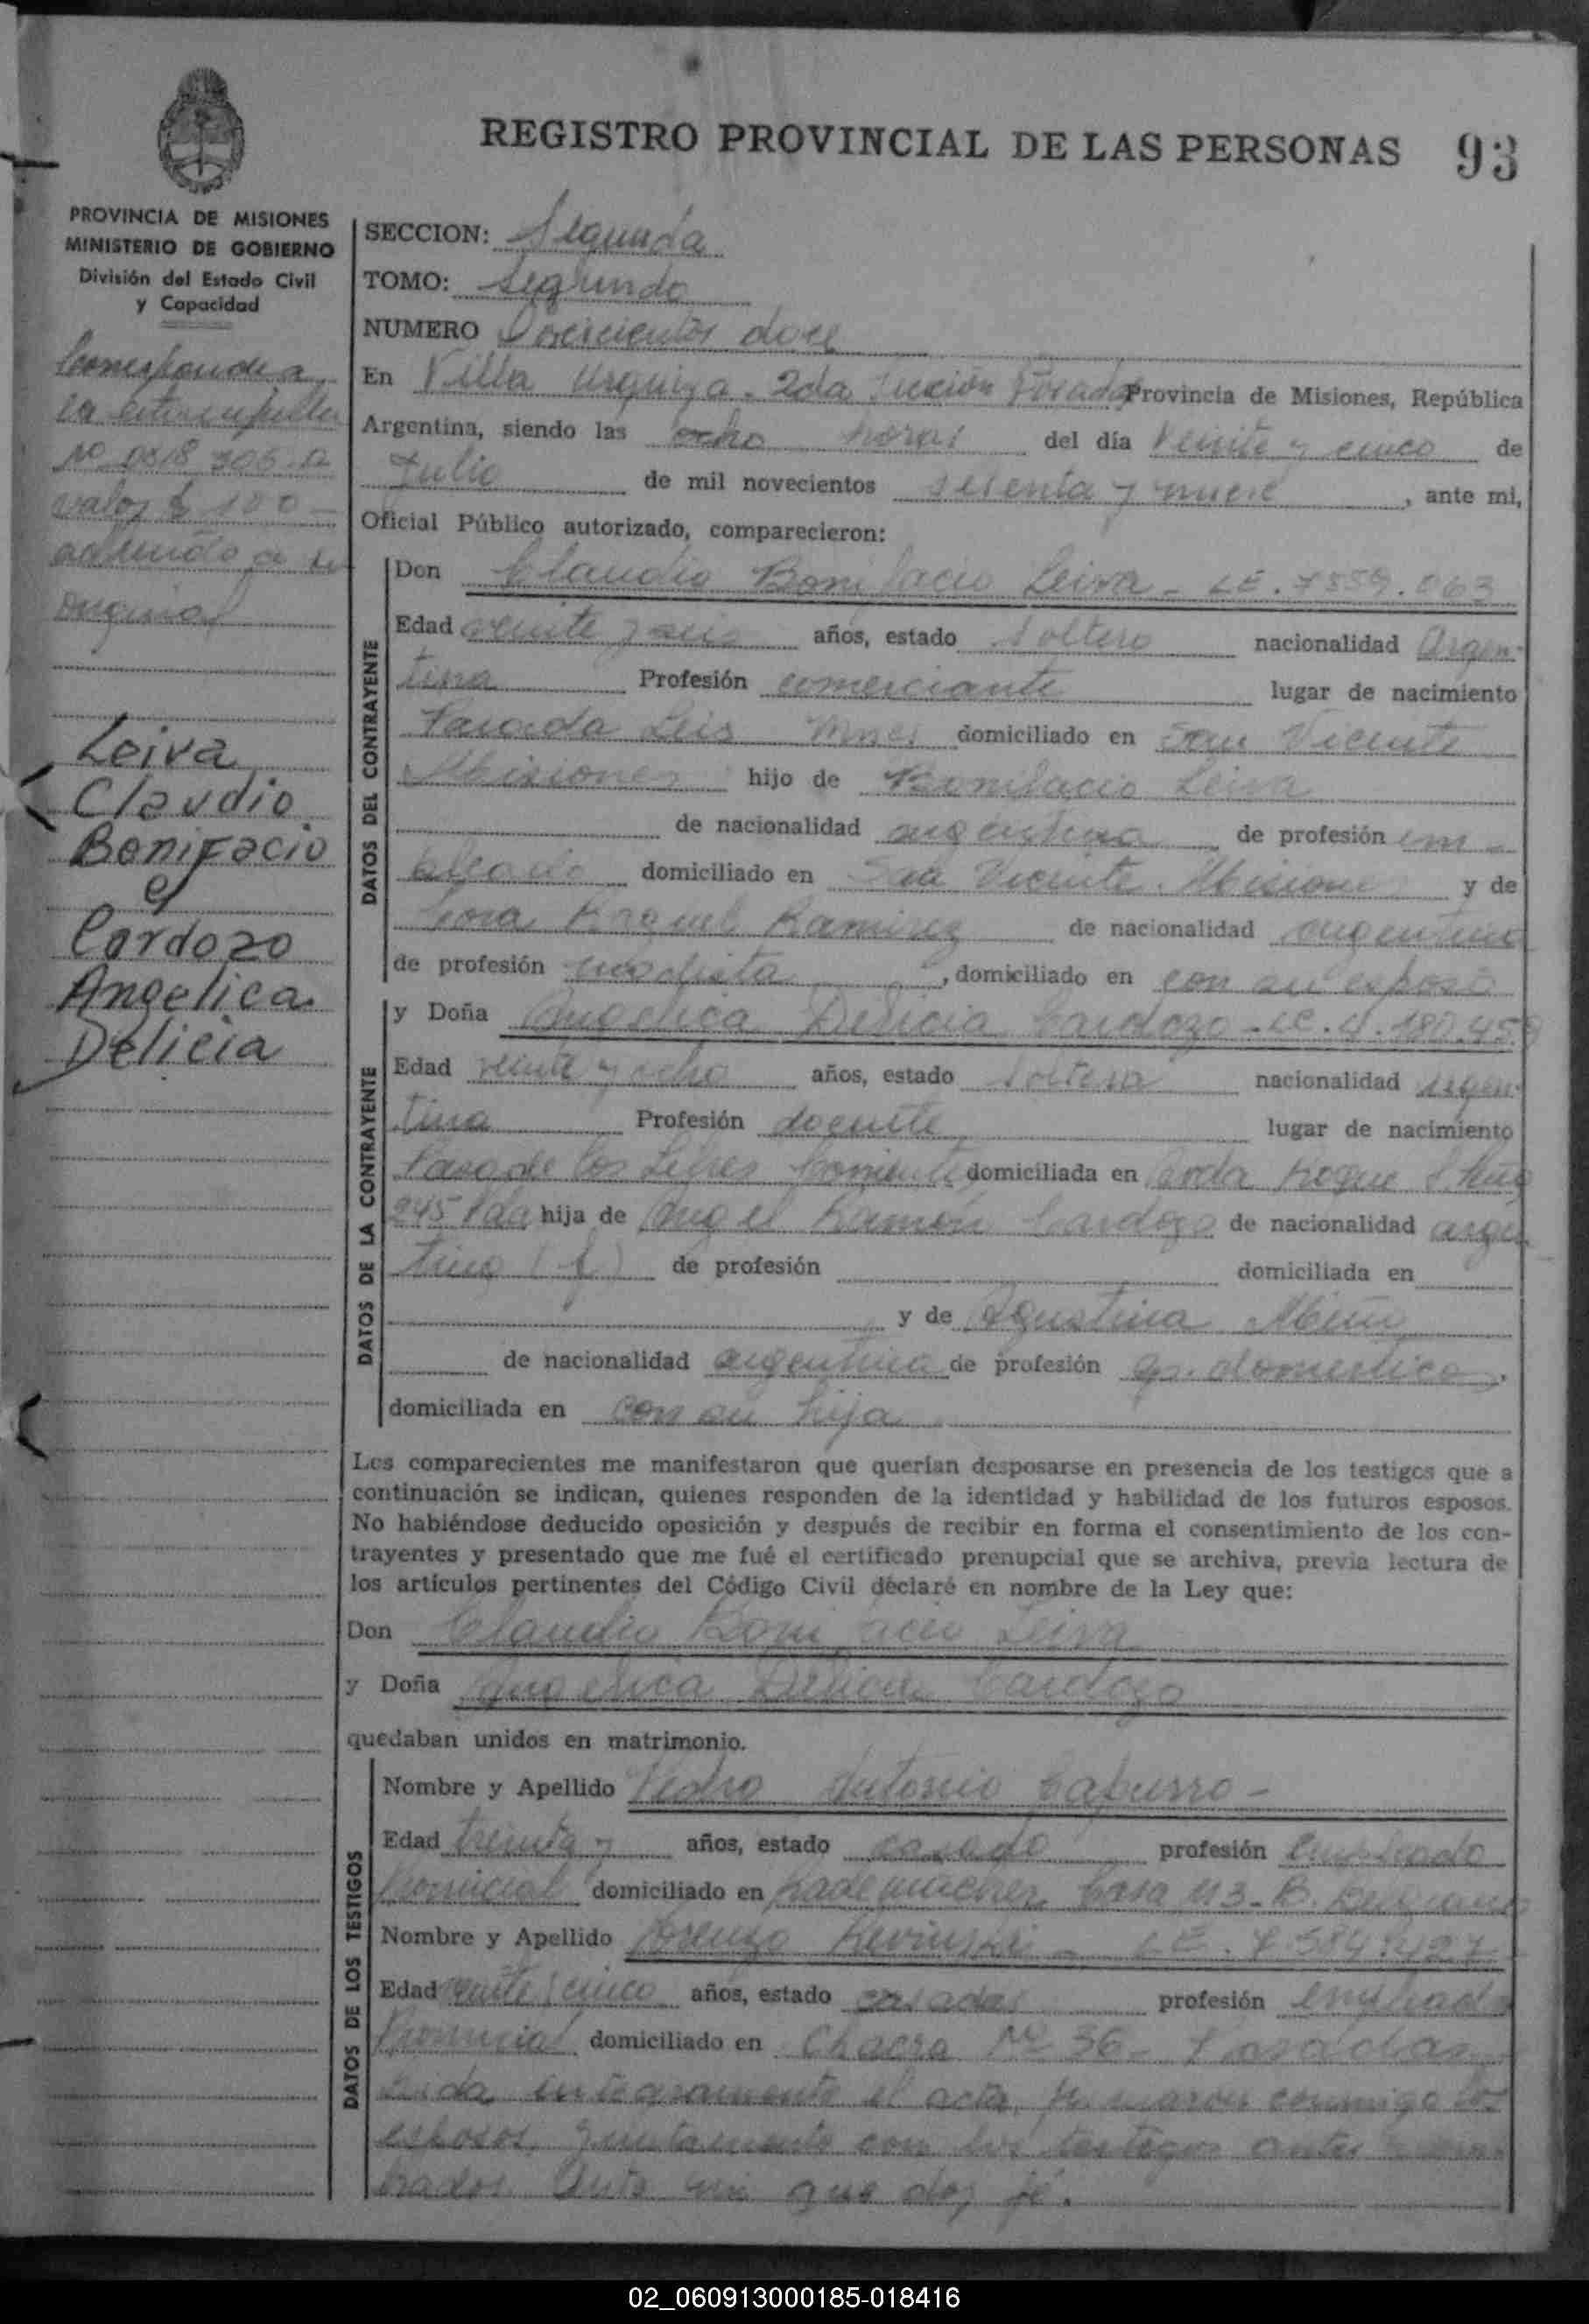 REGISTRO PROVINCIAL DE LAS PERSONAS 93
PROVINCIA DE MISIONES
MINISTERIO DE GOBIERNO
División del Estado Civil
y Capacidad
Corresponde a
la estampilla
No 0818 306
valor $ 100 -
original
Leiva
Claudio
Bonifacio
y
Cardozo
Angelica
Delicia
SECCION: Segunda
TOMO: Segundo
NUMERO Doscientos doce
En Villa Urquiza - 2da Sección Posadas Provincia de Misiones, República
Argentina, siendo las ocho horas del día veinte y cinco de
Julio de mil novecientos sesenta y nueve, ante mi,
Oficial Público autorizado, comparecieron:
DATOS DEL CONTRAYENTE
Don Claudio Bonifacio Leiva - LE. 7559.063
Edad veinte y seis años, estado soltero nacionalidad Argen-
tina Profesión comerciante lugar de nacimiento
Parada Leis Mnes domiciliado en San Vicente
Misiones hijo de Bonifacio Leiva
de nacionalidad argentina de profesión em-
pleado domiciliado en San Vicente Misiones y de
Raquel Ramirez de nacionalidad argentina
de profesión modista, domiciliado en con su esposo
DATOS DE LA CONTRAYENTE
y Doña Angelica Delicia Cardozo - LC. 4.180.459
Edad veinte y ocho años, estado soltera nacionalidad argen-
tina Profesión docente lugar de nacimiento
Paso de los Libres Corrientes domiciliada en Avda Roque S. Peña
245 Pdas hija de Angel Ramón Cardozo de nacionalidad argen
tino (f) de profesión domiciliada en
y de Agustina
de nacionalidad argentina de profesión q. domestico,
domiciliada en con su hija
Los comparecientes me manifestaron que querían desposarse en presencia de los testigos que a
continuación se indican, quienes responden de la identidad y habilidad de los futuros esposos.
No habiéndose deducido oposición y después de recibir en forma el consentimiento de los con-
trayentes y presentado que me fué el certificado prenupcial que se archiva, previa lectura de
los artículos pertinentes del Código Civil declaré en nombre de la Ley que:
Don Claudio Bonifacio Leiva
y Doña Angelica Delicia Cardozo
quedaban unidos en matrimonio.
DATOS DE LOS TESTIGOS
Nombre y Apellido Pedro Antonio Capurro -
Edad treinta y años, estado casado profesión empleado
Provincial domiciliado en Rademacher Casa 113 - B. Belgrano
Nombre y Apellido Lorenzo - LE. 7.584.427
Edad veinte y cinco años, estado casado profesión empleado
Provincial domiciliado en Chacra No 36 - Posadas
Leida integramente el acta, firmaron conmigo los
esposos, juntamente con los testigos antes nom-
brados ante mi que doy fé.
02_060913000185-018416